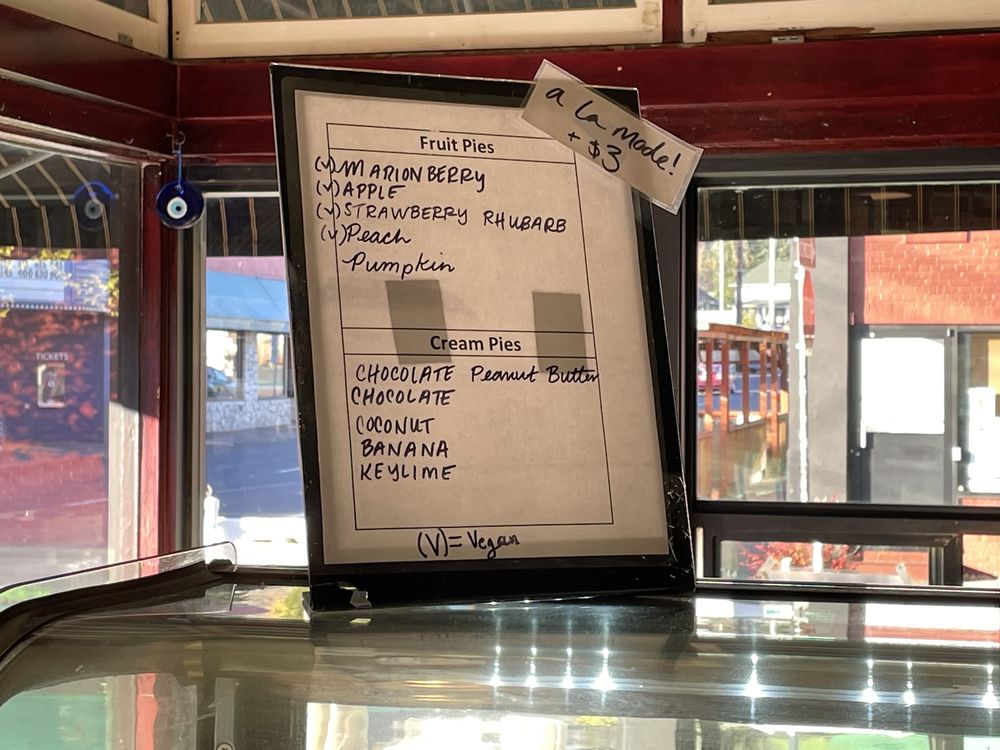 a la mode!
+ $3
Fruit Pies
(V) MARIONBERRY
(V) APPLE
(V) STRAWBERRY RHUBARB
(V) Peach
Pumpkin
Cream Pies
CHOCOLATE Peanut Butter
CHOCOLATE
COCONUT
BANANA
KEYLIME
(V) = Vegan
TICKETS